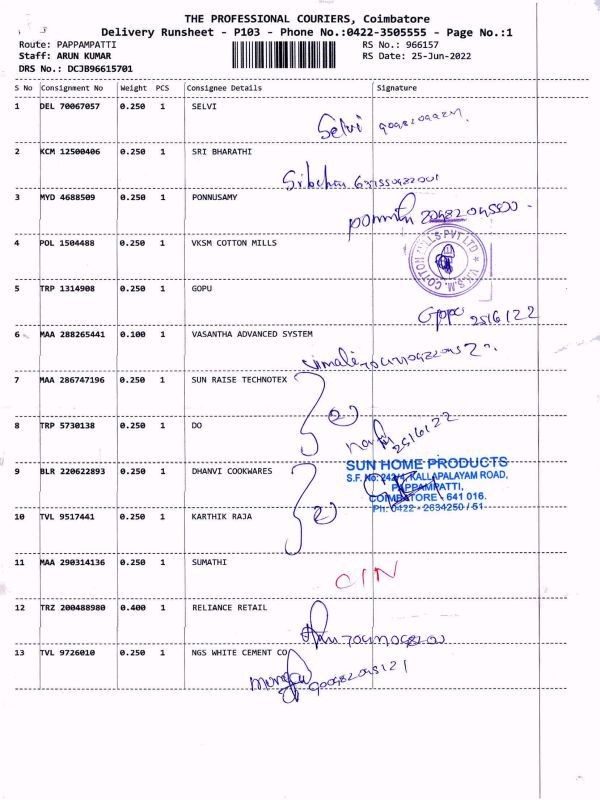 THE PROFESSIONAL COURIERS, Coimbatore
Delivery Runsheet - P103 - Phone No.:0422-3505555 - Page No.:1
Route: PAPPAMPATTI RS No.: 966157
Staff: ARUN KUMAR RS Date: 25-Jun-2022
DRS No.: DCJB96615701
S No Consignment No Weight PCS Consignee Details Signature
1 DEL 70067057 0.250 1 SELVI
Selvi
2 KCM 12500406 0.250 1 SRI BHARATHI
3 MYD 4688509 0.250 1 PONNUSAMY
4 POL 1504488 0.250 1 VKSM COTTON MILLS
V.K.S.M. COTTON MILLS PVT LTD
5 TRP 1314908 0.250 1 GOPU
25/6/22
6 MAA 288265441 0.100 1 VASANTHA ADVANCED SYSTEM
7 MAA 286747196 0.250 1 SUN RAISE TECHNOTEX
2
8 TRP 5730138 0.250 1 DO
25/6/22
SUN HOME PRODUCTS
9 BLR 220622893 0.250 1 DHANVI COOKWARES
S.F. No. 242/4, KALLAPALAYAM ROAD,
PAPPAMPATTI,
COIMBATORE - 641 016.
Ph: 0422 - 2634250 / 51
2
10 TVL 9517441 0.250 1 KARTHIK RAJA
11 MAA 290314136 0.250 1 SUMATHI
CIN
12 TRZ 200488980 0.400 1 RELIANCE RETAIL
13 TVL 9726010 0.250 1 NGS WHITE CEMENT CO